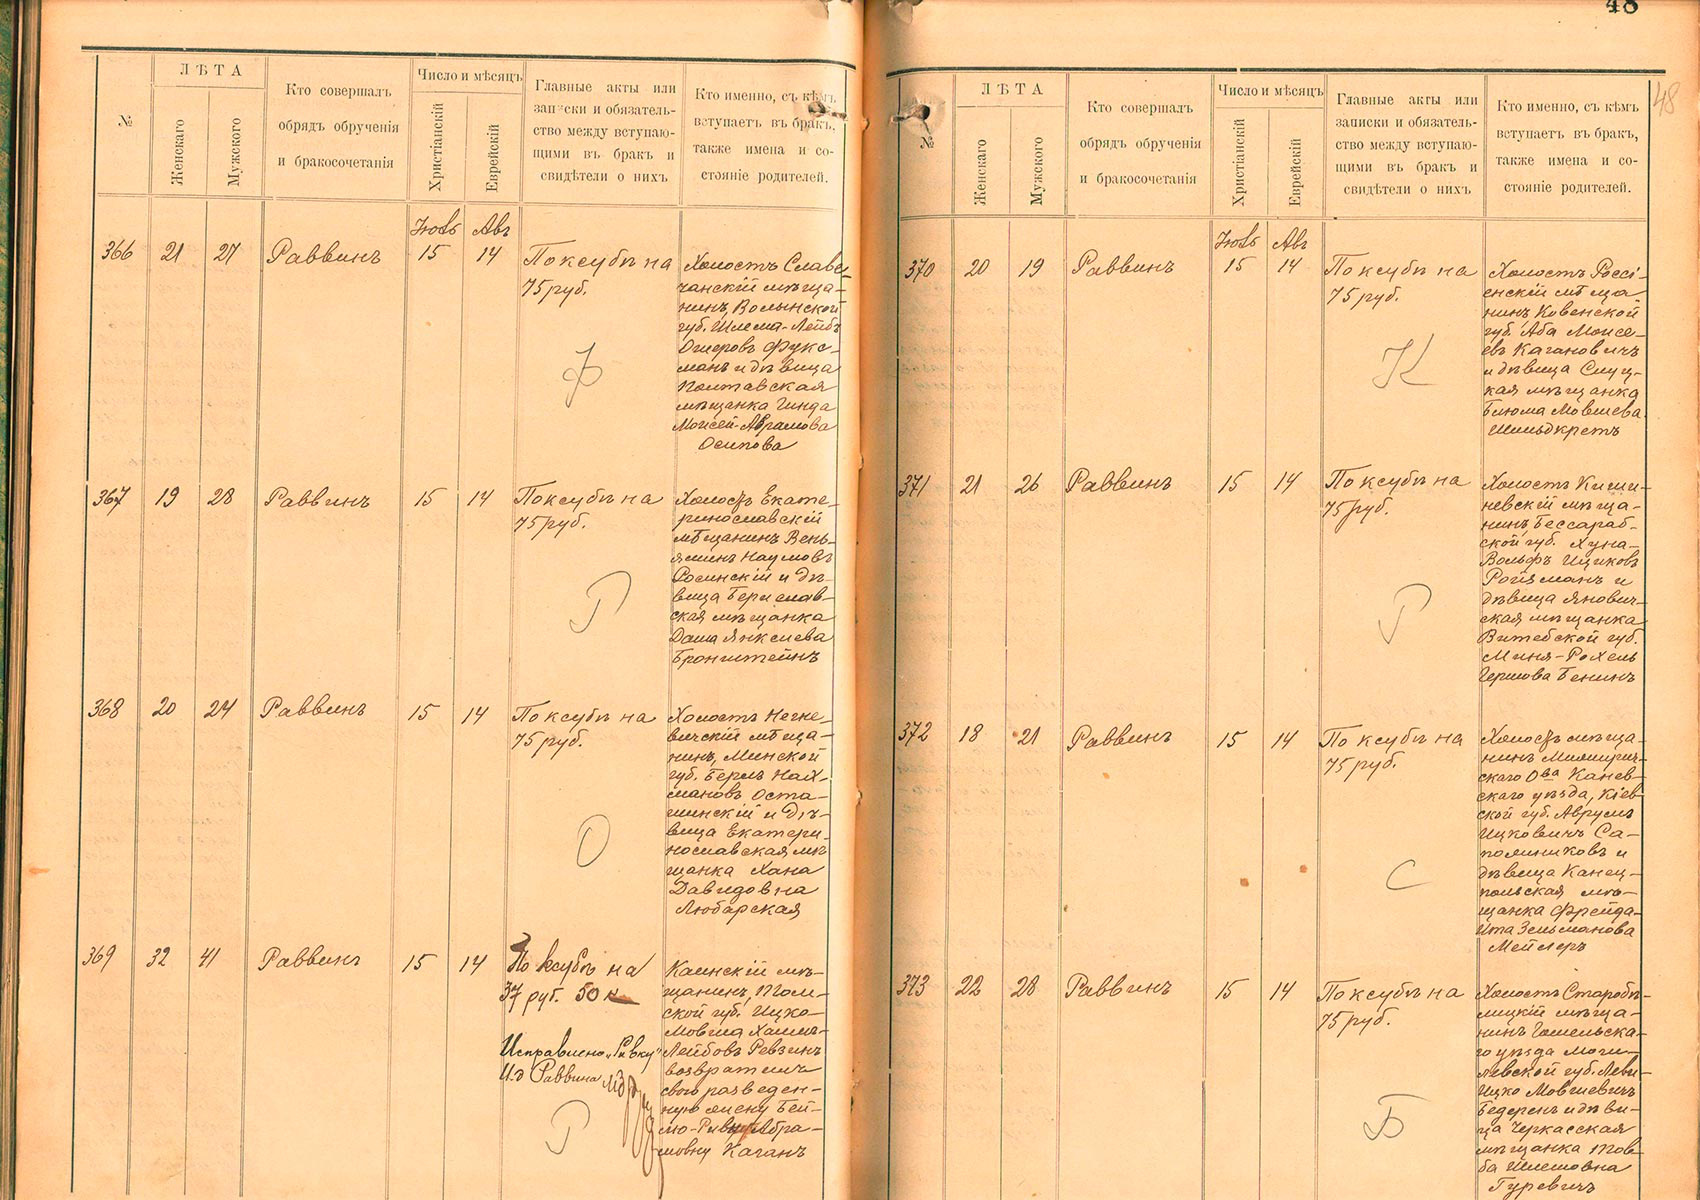 №
ЛѢТА
Женскаго
Мужского
Кто совершалъ
обрядъ обрученія
и бракосочетанія
Число и мѣсяцъ
Христіанскій
Еврейскій
Главные акты или
записки и обязатель-
ство между вступаю-
щими въ бракъ и
свидѣтели о нихъ
Кто именно, съ кѣмъ
вступаетъ въ бракъ,
также имена и со-
стояніе родителей.
Авг
366 21 27 Раввинъ 15 14 По ксубѣ на
75 руб.
Холостъ Славе-
чанскій мѣща-
нинъ, Волынской
губ. Шлема-Лейбъ
Ошеровъ Фукс-
манъ и дѣвица
Полтавская
мѣщанка Гинда
Моисей-Абрамова
Осипова
Ф
367 19 28 Раввинъ 15 14 По ксубѣ на
75 руб.
Холостъ Екате-
ринославскій
мѣщанинъ Вень-
яминъ Наумовъ
Росинскій и дѣ-
вица Бериславс-
кая мѣщанка
Даша Янкелева
Бронштейнъ
Р
368 20 24 Раввинъ 15 14 По ксубѣ на
75 руб.
Холостъ Негне-
вичскій мѣща-
нинъ, Минской
губ. Берлъ Нах-
мановъ Оста-
шинскій и дѣ-
вица Екатери-
нославская мѣ
щанка Хана
Давидовна
Любарская
О
369 32 41 Раввинъ 15 14 По ксубѣ на
37 руб. 50 к
Исправлено "Ривку"
И.д Раввина
Каинскій мѣ-
щанинъ, Том-
ской губ. Ицко-
Мовша Хаимъ-
Лейбовъ Ревзинъ
возвратилъ
свою разведен-
ную жену Бей-
лю-Ривку Абра-
мовну Каганъ
Р
48
48
№
ЛѢТА
Женскаго
Мужского
Кто совершалъ
обрядъ обрученія
и бракосочетанія
Число и мѣсяцъ
Христіанскій
Еврейскій
Главные акты или
записки и обязатель-
ство между вступаю-
щими въ бракъ и
свидѣтели о нихъ
Кто именно, съ кѣмъ
вступаетъ въ бракъ,
также имена и со-
стояніе родителей.
Авг
370 20 19 Раввинъ 15 14 По ксубѣ на
75 руб.
Холостъ Россі-
енскій мѣща
нинъ Ковенской
губ. Аба Моисе-
евъ Кагановичъ
и дѣвица Слуц-
кая мѣщанка
Блюма Мовшева
Шильдкретъ
К
371 21 26 Раввинъ 15 14 По ксубѣ на
75 руб.
Холостъ Киши-
невскій мѣща-
нинъ Бессараб-
ской губ. Хуна-
Вольфъ Ициковъ
Ройзманъ и
дѣвица Янович-
ская мѣщанка
Витебской губ.
Миня-Рохель
Гершова Бенинъ
Р
372 18 21 Раввинъ 15 14 По ксубѣ на
75 руб.
Холостъ мѣща-
нинъ
скаго О-ва Канев-
скаго уѣзда, Кіев-
ской губ. Аврумъ
Ицковичъ Са-
пожниковъ и
дѣвица Канец-
польская мѣ-
щанка Фрейда-
Ита Зельманова
Мейлеръ
С
373 22 28 Раввинъ 15 14 По ксубѣ на
75 руб.
Холостъ Старобѣ-
лицкій мѣща-
нинъ Гомельска-
го уѣзда Моги-
левской губ. Леви-
Ицко Мовшевичъ
Бедеренъ и дѣви-
ца Черкасская
мѣщанка Тов-
ба Шлемовна
Гуревичъ
Б